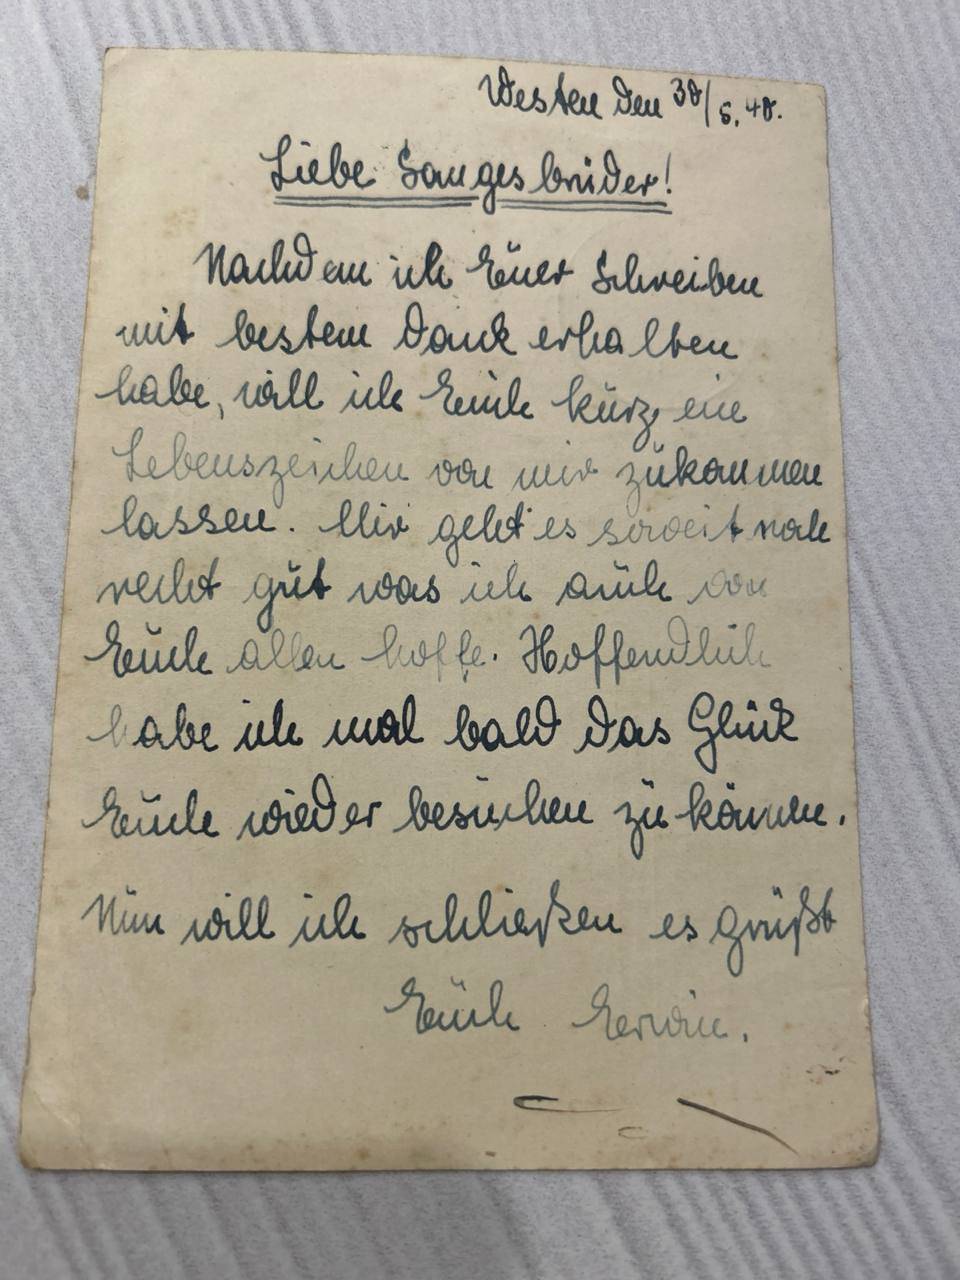 Westen den 30/5. 40.
Liebe Sangesbrüder!
Nachdem ich Euer Schreiben
mit bestem Dank erhalten
habe, will ich Euch kurz ein
Lebenszeichen von mir zukommen
lassen. Mir geht es soweit noch
recht gut was ich auch von
Euch allen hoffe. Hoffendlich
habe ich mal bald das Glück
Euch wieder besuchen zu können.
Nun will ich schließen es grüßt
Euch Erwin.